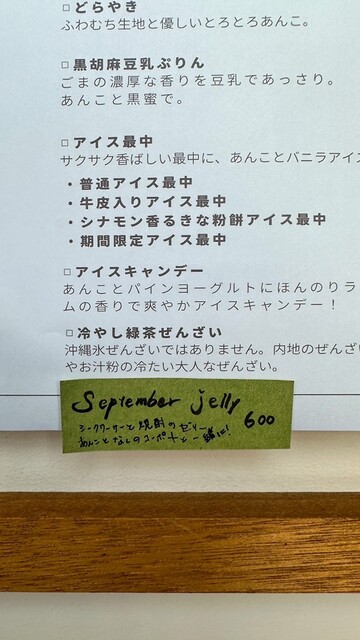 □どらやき
ふわむち生地と優しいとろとろあんこ。
□黒胡麻豆乳ぷりん
ごまの濃厚な香りを豆乳であっさり。
あんこと黒蜜で。
□アイス最中
サクサク香ばしい最中に、あんことバニラアイス
・普通アイス最中
・牛皮入りアイス最中
・シナモン香るきな粉餅アイス最中
・期間限定アイス最中
□アイスキャンデー
あんことパインヨーグルトにほんのりラ
ムの香りで爽やかアイスキャンデー！
□冷やし緑茶ぜんざい
沖縄氷ぜんざいではありません。内地のぜんざい
やお汁粉の冷たい大人なぜんざい。
September jelly
シークワーサーと焼酎のゼリー 600
あんことなしのコンポートと一緒に!